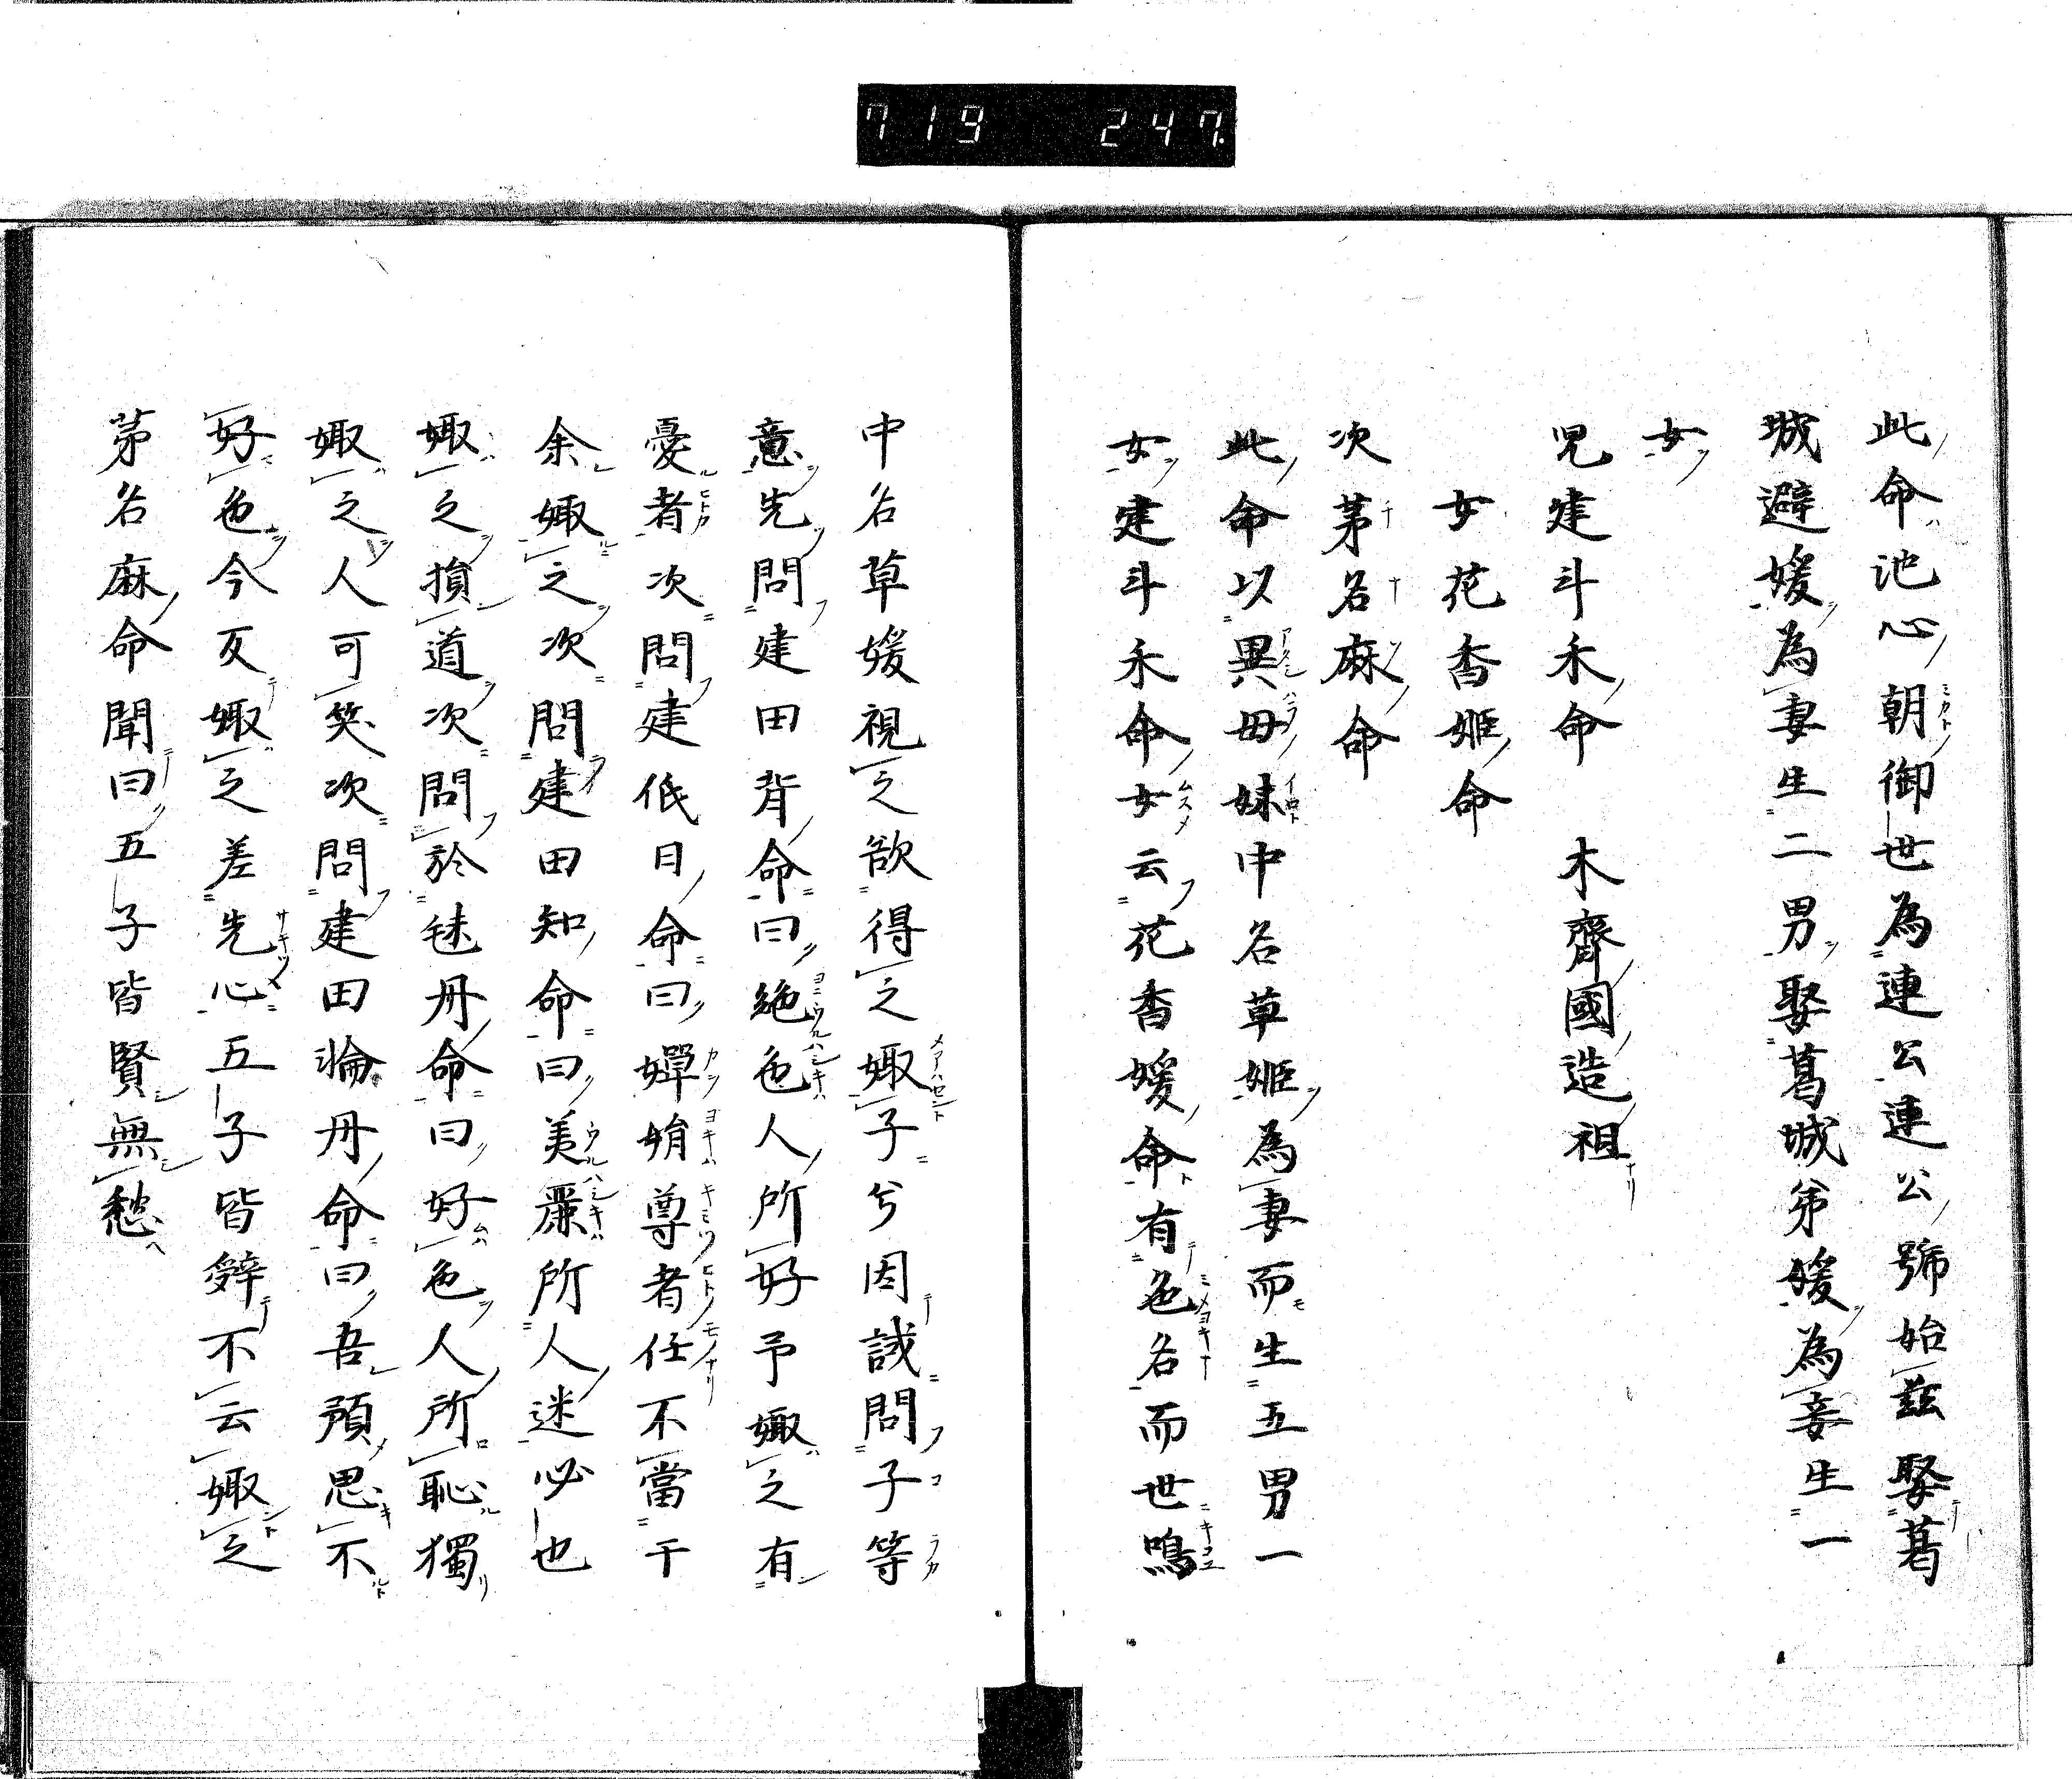 719 247.
此命池心朝御世為連公連公號始茲娶葛
城避媛為妻生二男娶葛城弟媛為妾生一
女
兒建斗禾命 木齋國造祖
女花香姬命
次第名麻命
此命以異母妹中名草姬為妻而生五男一
女建斗禾命女云花香媛命有色名而世鳴
中名草媛視之欲得之娵子兮因誡問子等
意先問建田背命曰絶色人所好予娵之有
憂者次問建低日命曰嬋娟尊者任不當干
余娵之次問建田知命曰美麗所人迷必也
娵之損道次問於毬丹命曰好色人所恥獨
娵之人可笑次問建田楡丹命曰吾預思不
好色今反娵之差先心五子皆辤不云娵之
第名麻命聞曰五子皆賢無愁